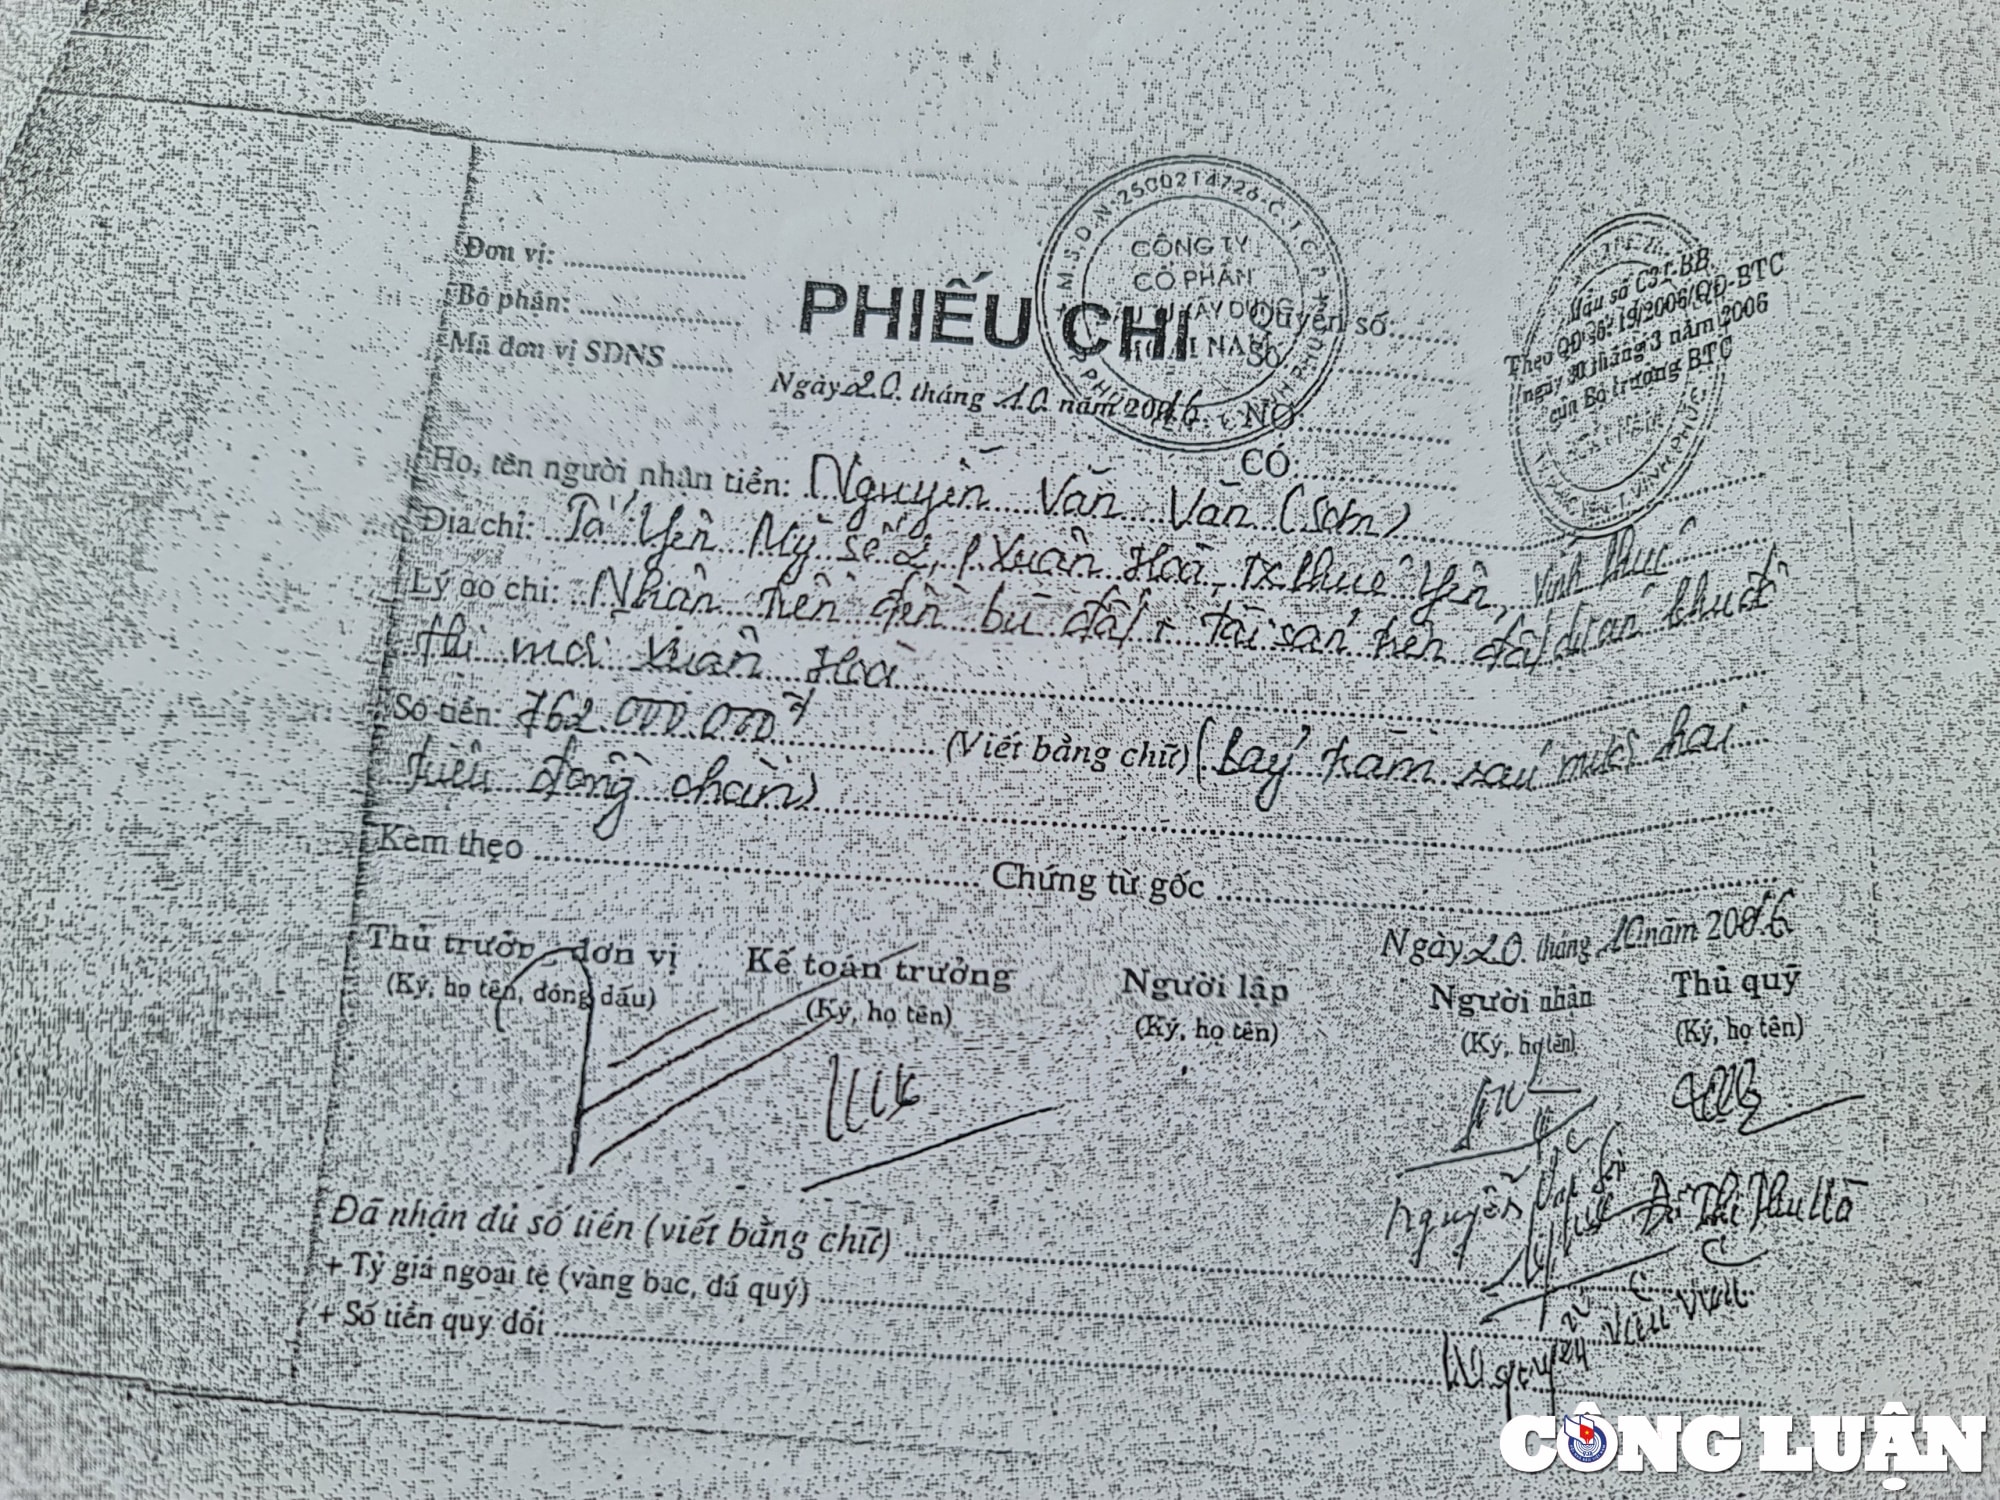 M.S.D.N: 2500214726-C.T.C.P
CÔNG TY
CỔ PHẦN
XÂY DỰNG
NAM
Đơn vị:
Bộ phận:
Mã đơn vị SDNS
PHIẾU CHI
Ngày 20 tháng 10 năm 2016
Quyển số:
Số:
NỢ:
CÓ:
Mẫu số C31-BB
Theo QĐ số: 19/2006/QĐ-BTC
ngày 30 tháng 3 năm 2006
của Bộ trưởng BTC
Họ, tên người nhận tiền: Nguyễn Văn Văn (Sơn)
Địa chỉ: Tổ Yên Mỹ số 2, P Xuân Hoà, TX Phúc Yên, Vĩnh Phúc
Lý do chi: Nhận tiền đền bù đất + tài sản trên đất dự án khu đô
thị mới Xuân Hoà
Số tiền: 762.000.000đ (Viết bằng chữ) (Bảy trăm sáu mươi hai
triệu đồng chẵn)
Kèm theo Chứng từ gốc
Ngày 20 tháng 10 năm 2016
Thủ trưởng đơn vị Kế toán trưởng Người lập Người nhận Thủ quỹ
(Ký, họ tên, đóng dấu) (Ký, họ tên) (Ký, họ tên) (Ký, họ tên) (Ký, họ tên)
Nguyễn Văn Đỗ Thị Thu Hà
Đã nhận đủ số tiền (viết bằng chữ)
+ Tỷ giá ngoại tệ (vàng bạc, đá quý)
+ Số tiền quy đổi
Nguyễn
CÔNG LUẬN